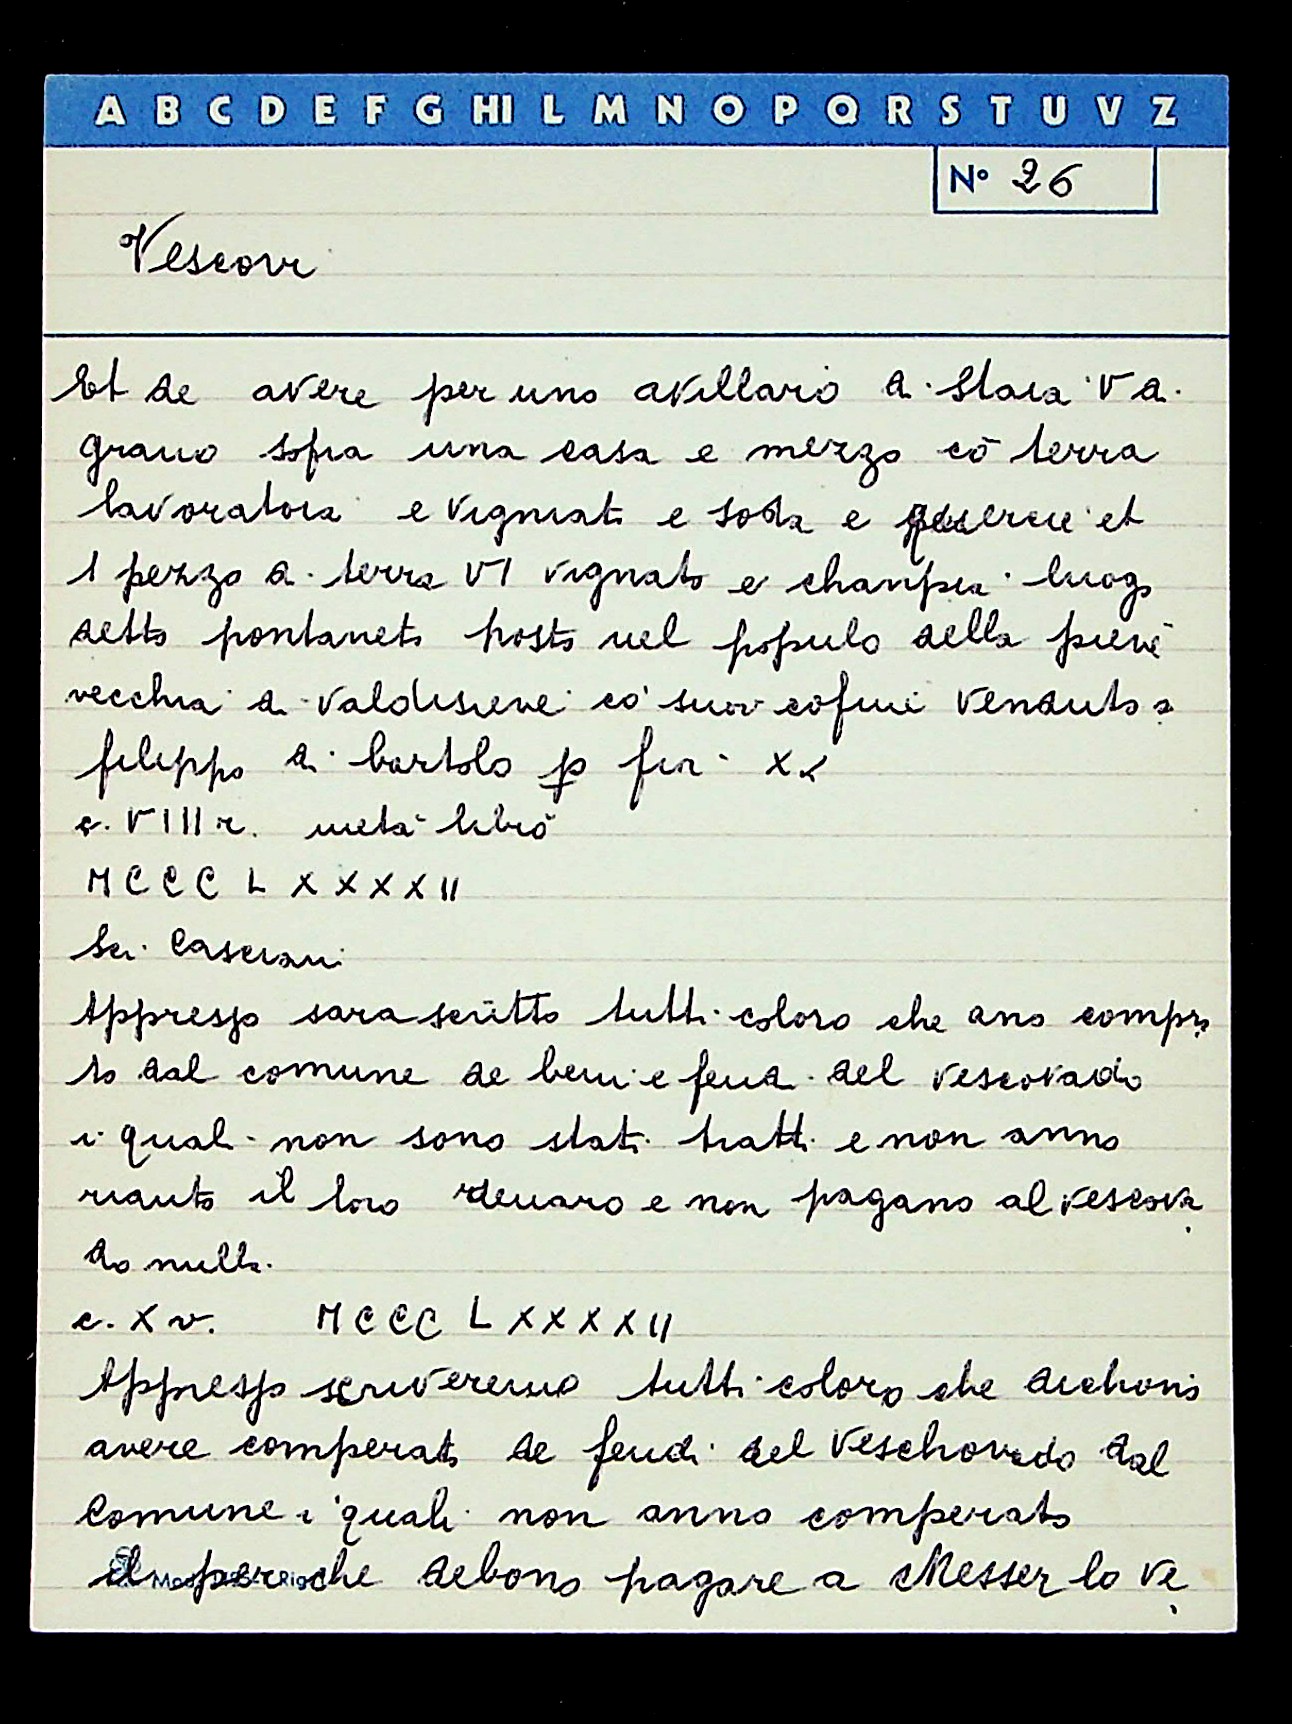 A B C D E F G HI L M N O P Q R S T U V Z
N° 26
Vescovi
Et de avere per uno avillario di staia V di
grano sopra una casa e mezzo cō terra
lavoratoia e vigniati e soda e quercie et
1 pezzo di terra VI vignato e chanpia luogo
detto pontaneto posto nel populo della pieve
vecchia di Valdisieve cō suoi cofini venduto a
filippo di bartolo p fior XX
c. VIII r. metà libro
MCCCLXXXXII
Sci Casciani
Appresso sara scritto tutti coloro che ano compra
to dal comune de beni e feudi del vescovado
i quali non sono stati tratti e non anno
riauto il loro denaro e non pagano al vescova
do nulla.
c. X v. MCCCLXXXXII
Appresso scriveremo tutti coloro che dichono
avere comperato de feudi del Veschovado dal
Comune i quali non anno comperato
il perche debono pagare a Messer lo Ve